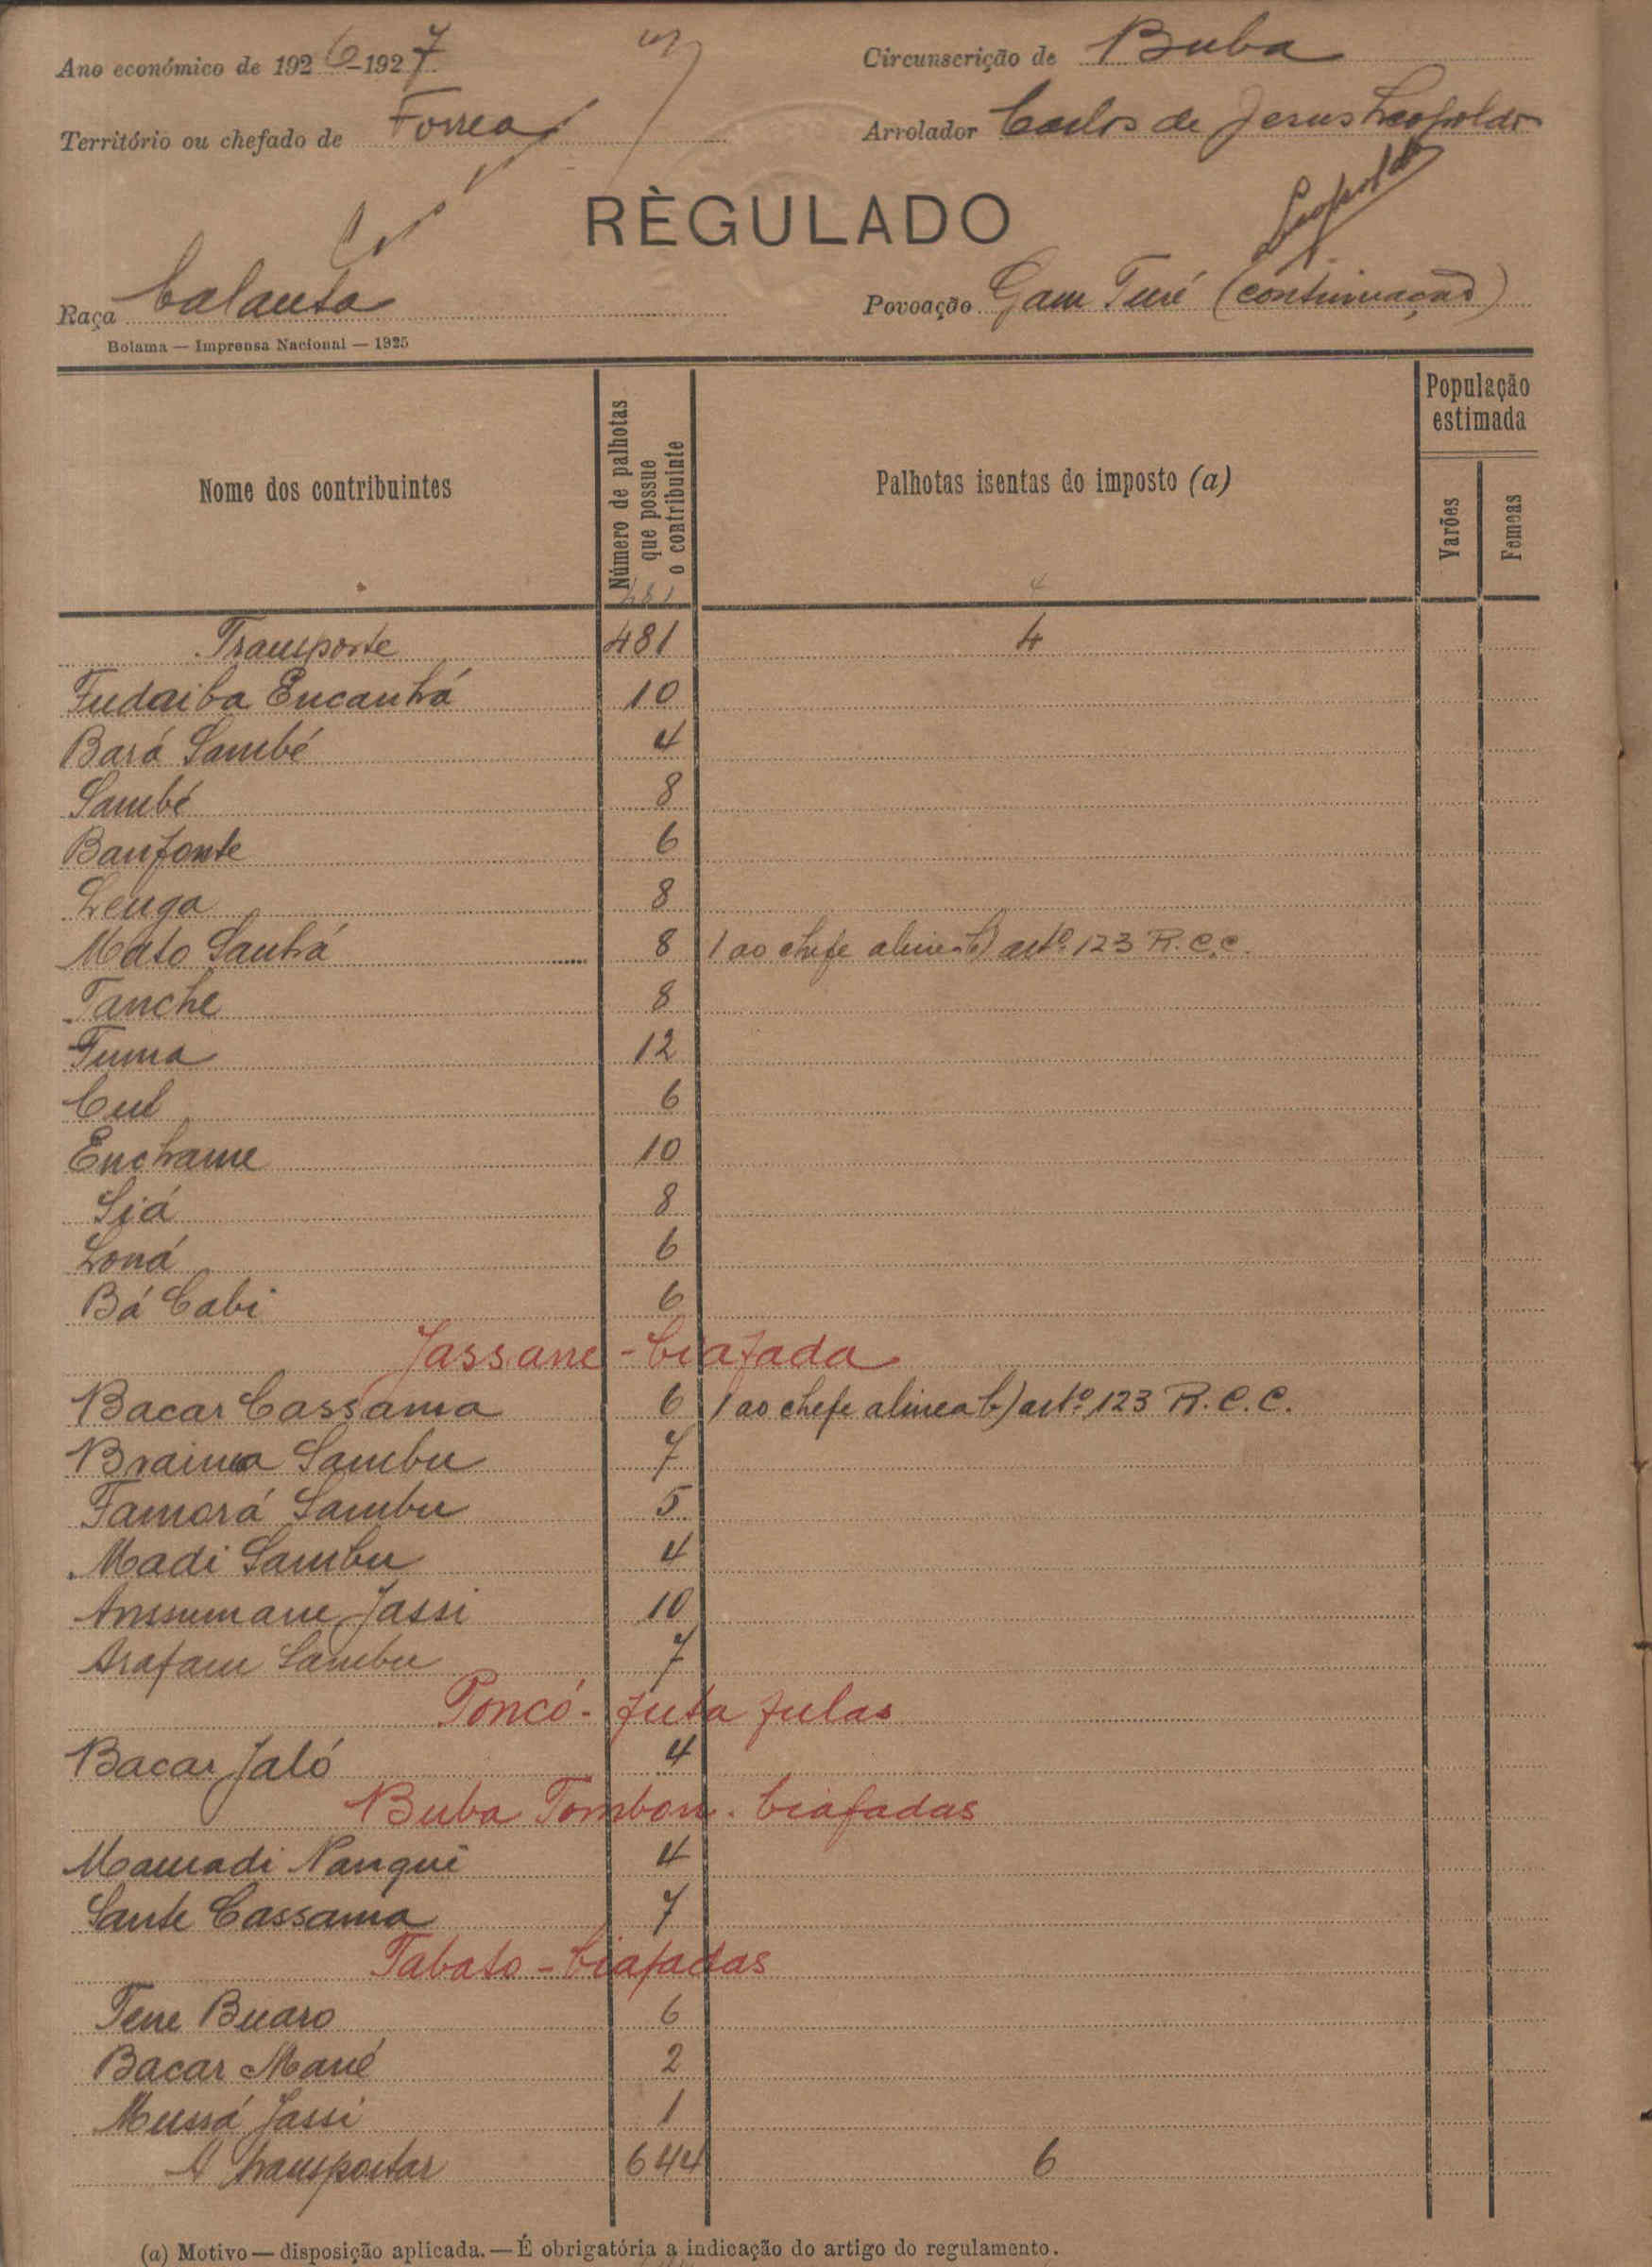 Ano económico de 1926-1927
Circunscrição de Buba
Território ou chefado de Forrea
Arrolador Carlos de Jesus Leopoldo
Leopoldo
RÈGULADO
Raça balanta
Povoação Gam Turé (continuação)
Bolama — Imprensa Nacional — 1925
Nome dos contribuintes
Número de palhotas que possue o contribuinte
Palhotas isentas do imposto (a)
População estimada
Varões
Femeas
481 4
Transporte 481 4
Fudaiba Encanhá 10
Bará Sambé 4
Sambé 8
Banfonte 6
Lenga 8
Mato Sanhá 8 1 ao chefe alinea b) artº. 123 R.C.C.
Tanche 8
Tuma 12
Cul 6
Enchame 10
Siá 8
Loná 6
Bá Cabi 6
Jassane - biafada
Bacar Cassama 6 1 ao chefe alinea b) artº. 123 R.C.C.
Braima Sambu 7
Famorá Sambu 5
Madi Sambu 4
Anssumane Jassi 10
Arafam Sambu 7
Poncó - futa fulas
Bacar Jaló 4
Buba Tombon - biafadas
Mamadi Nanqui 4
Sante Cassama 7
Tabato - biafadas
Tene Buaro 6
Bacar Mané 2
Mussá Jassi 1
A transportar 644 6
(a) Motivo — disposição aplicada. — É obrigatória a indicação do artigo do regulamento.